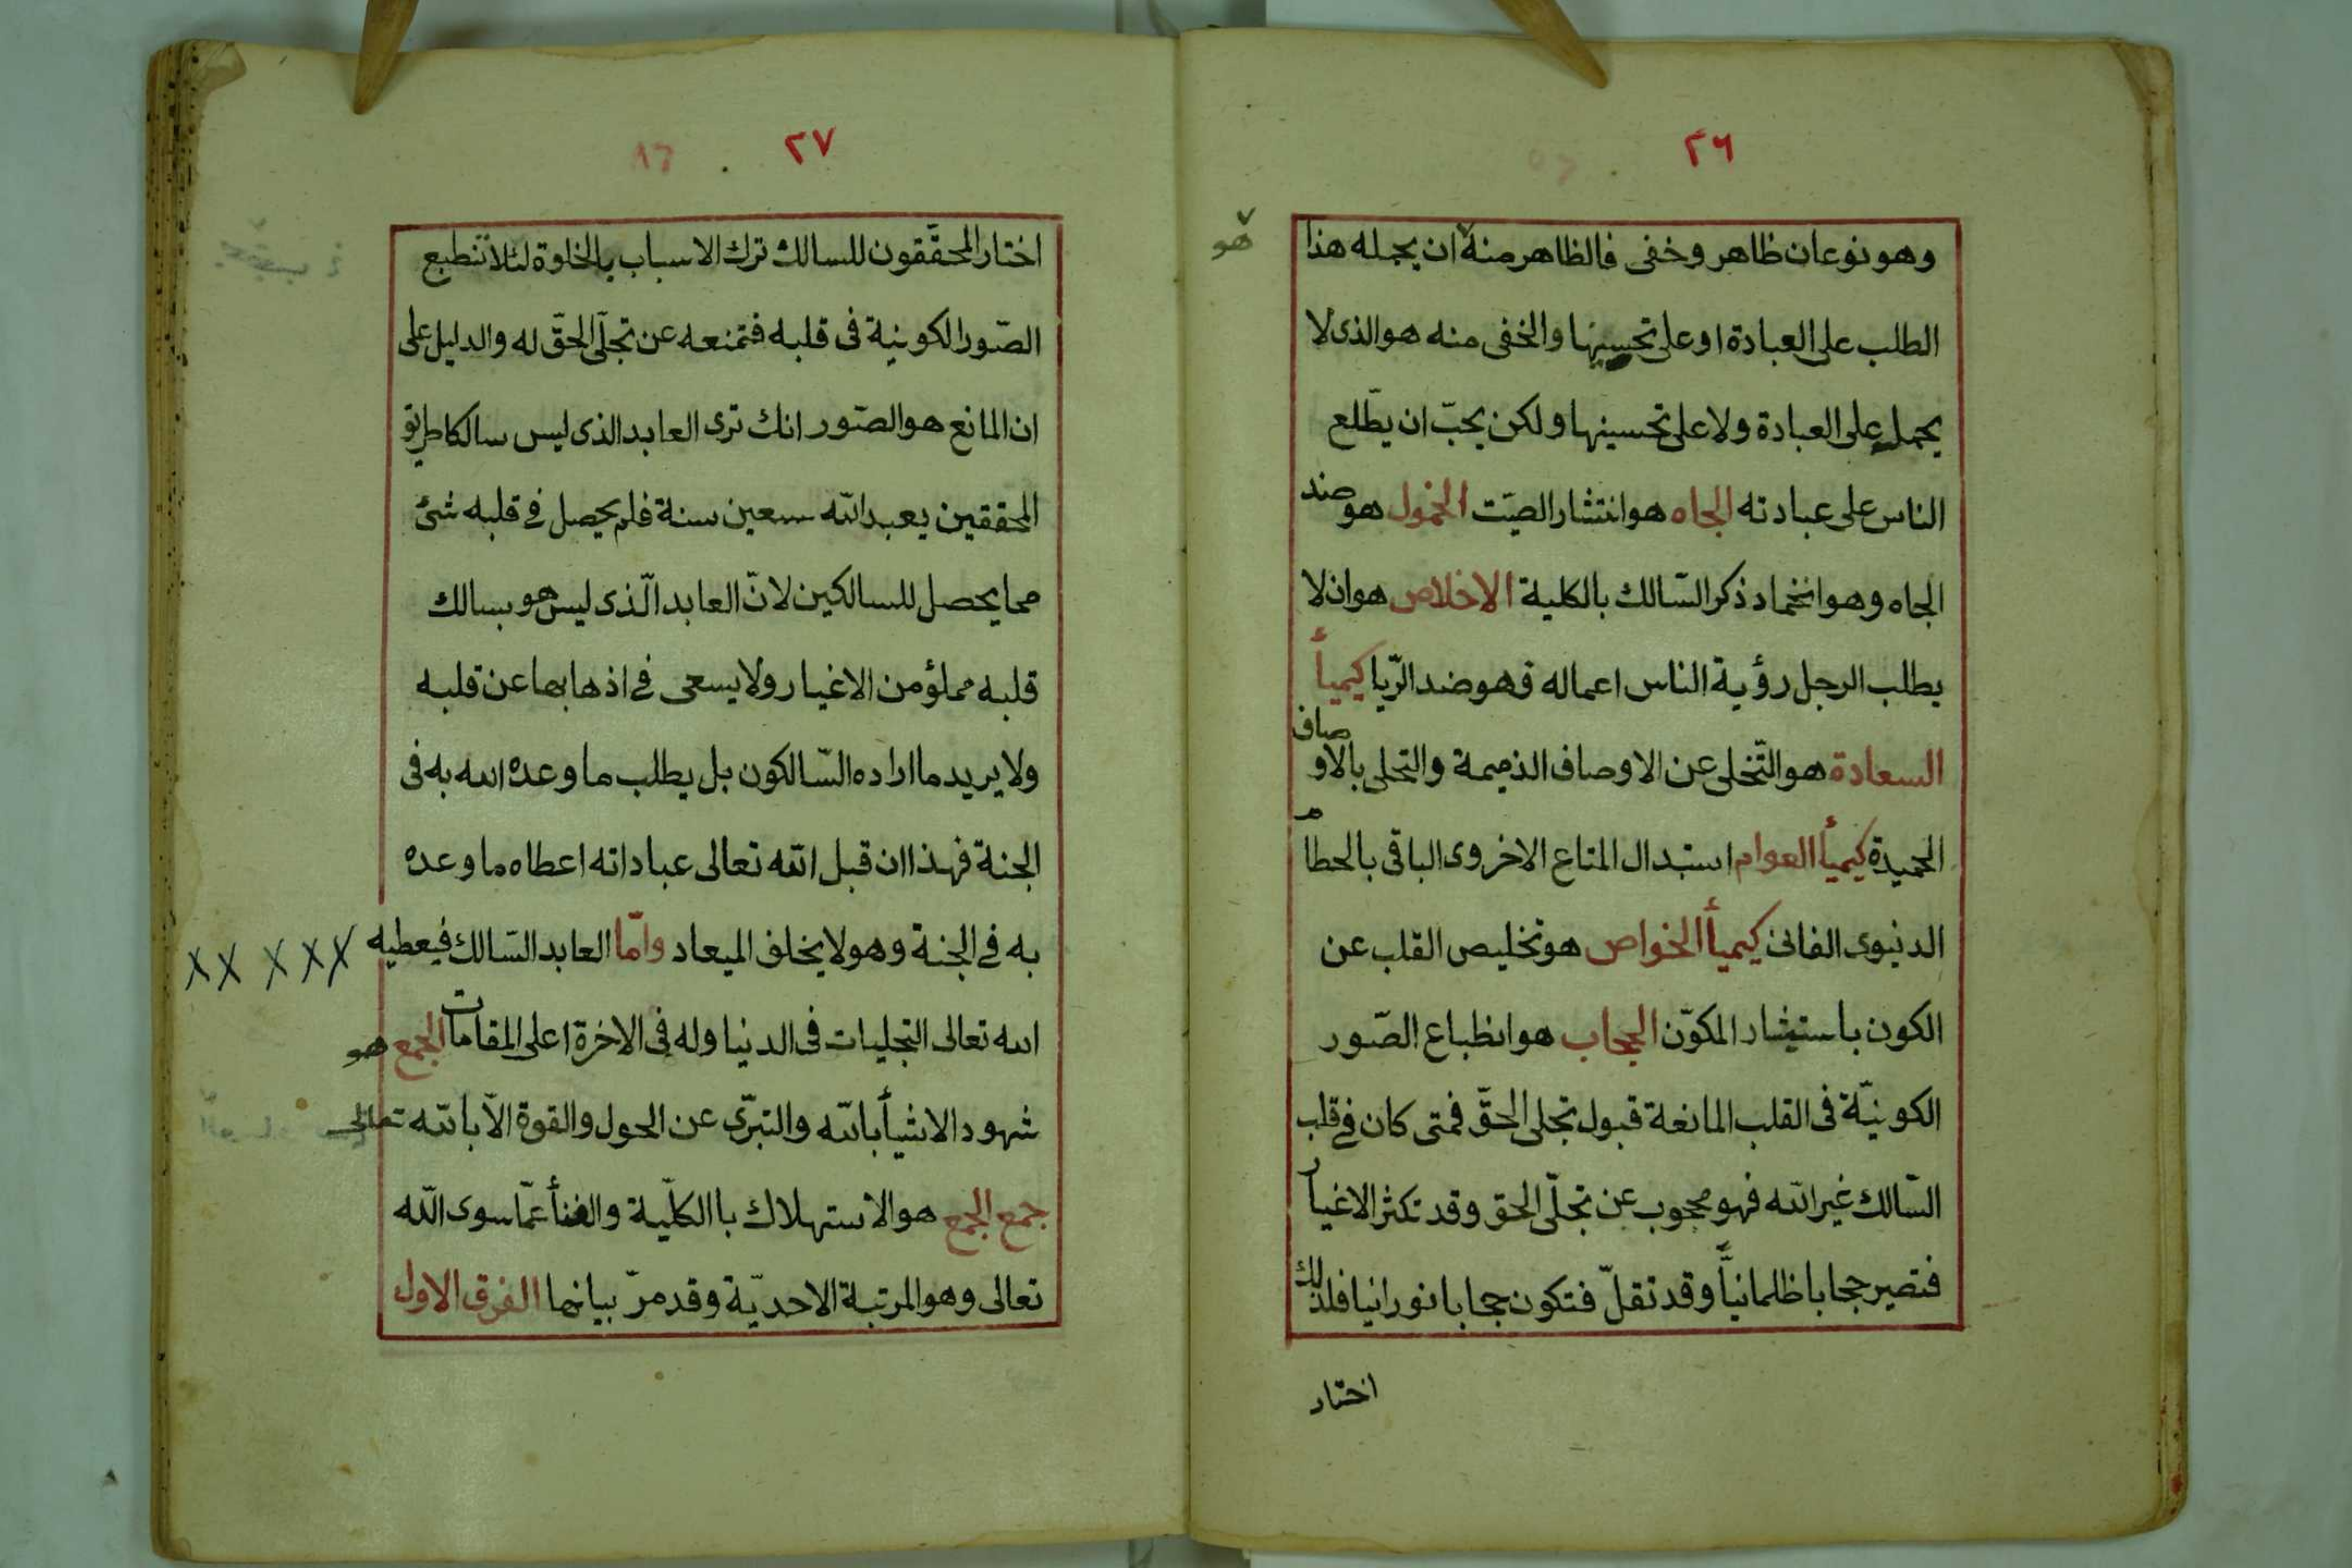 ٢٦
وهو نوعان ظاهر وخفى فالظاهر منه ان يحمله هذا
هو
الطلب على العبادة او على تحسينها والخفى منه هو الذى لا
يحمله على العبادة ولا على تحسينها ولكن يحبّ ان يطّلع
الناس على عبادته الجاه هو انتشار الصيّت الخمول هو ضد
الجاه وهو انخماد ذكر السّالك بالكلية الاخلاص هو ان لا
يطلب الرجل رؤية الناس اعماله فهو ضد الرّيا كيمياأ
السعادة هو التّخلى عن الاوصاف الذميمة والتحلى بالاوصاف
الحميدة كيمياأ العوام استبدال المتاع الاخروى الباقى بالحطام
الدنيوى الفانى كيمياأ الخواص هو تخليص القلب عن
الكون باستيثار المكوّن الحجاب هو انطباع الصّور
الكونيّة فى القلب المانعة قبول تجلى الحقّ فمتى كان فى قلب
السّالك غير اللّه فهو محجوب عن تجلّى الحق وقد تكثر الاغيار
فتصير حجابا ظلمانيّاً وقد تقلّ فتكون حجابا نورانيا فلذلك
اختار
٢٧
اختار المحقّقون للسالك ترك الاسباب بالخلوة لئلا تنطبع
الصّور الكونية فى قلبه فتمنعه عن تجلّى الحقّ له والدليل على
ان المانع هو الصّور انك ترى العابد الذى ليس سالكا طريق
المحققين يعبد اللّه سبعين سنة فلم يحصل فى قلبه شئ
مما يحصل للسالكين لانّ العابد الّذى ليس هو بسالك
قلبه مملؤ من الاغيار ولا يسعى فى اذهابها عن قلبه
ولا يريد ما اراده السّالكون بل يطلب ما وعده الله به فى
الجنة فهذا ان قبل اللّه تعالى عباداته اعطاه ما وعده
به فى الجنة وهو لا يخلف الميعاد وامّا العابد السّالك فيعطيه
الله تعالى التجليات فى الدنيا وله فى الاخرة اعلى المقامات الجمع هو
شهود الاشيأ باللّه والتبرّى عن الحول والقوة الّا باللّه تعالى
جمع الجمع هو الاستهلاك باالكلّية والفنأ عمّا سوى اللّه
تعالى وهو المرتبة الاحديّة وقد مرّ بيانها الفرق الاول